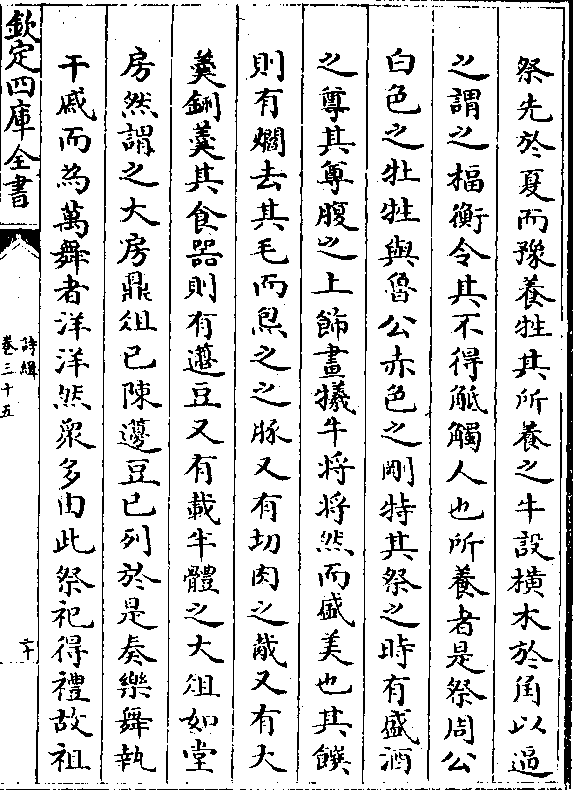 祭先於夏而豫養牲其所養之牛設横木於角以逼
之謂之楅衡令其不得觝觸人也所養者是祭周公
白色之牡牲與魯公赤色之剛特其祭之時有盛酒
之尊其尊腹之上飾畫犧牛將將然而盛美也其饌
則有爓去其毛而炰之之豚又有切肉之胾又有大
羮鉶羮其食器則有籩豆又有載半體之大俎如堂
房然謂之大房鼎俎已陳籩豆已列於是奏樂舞執
干戚而為萬舞者洋洋然衆多由此祭祀得禮故祖
欽定四庫全書
詩緝
卷三十五
六十